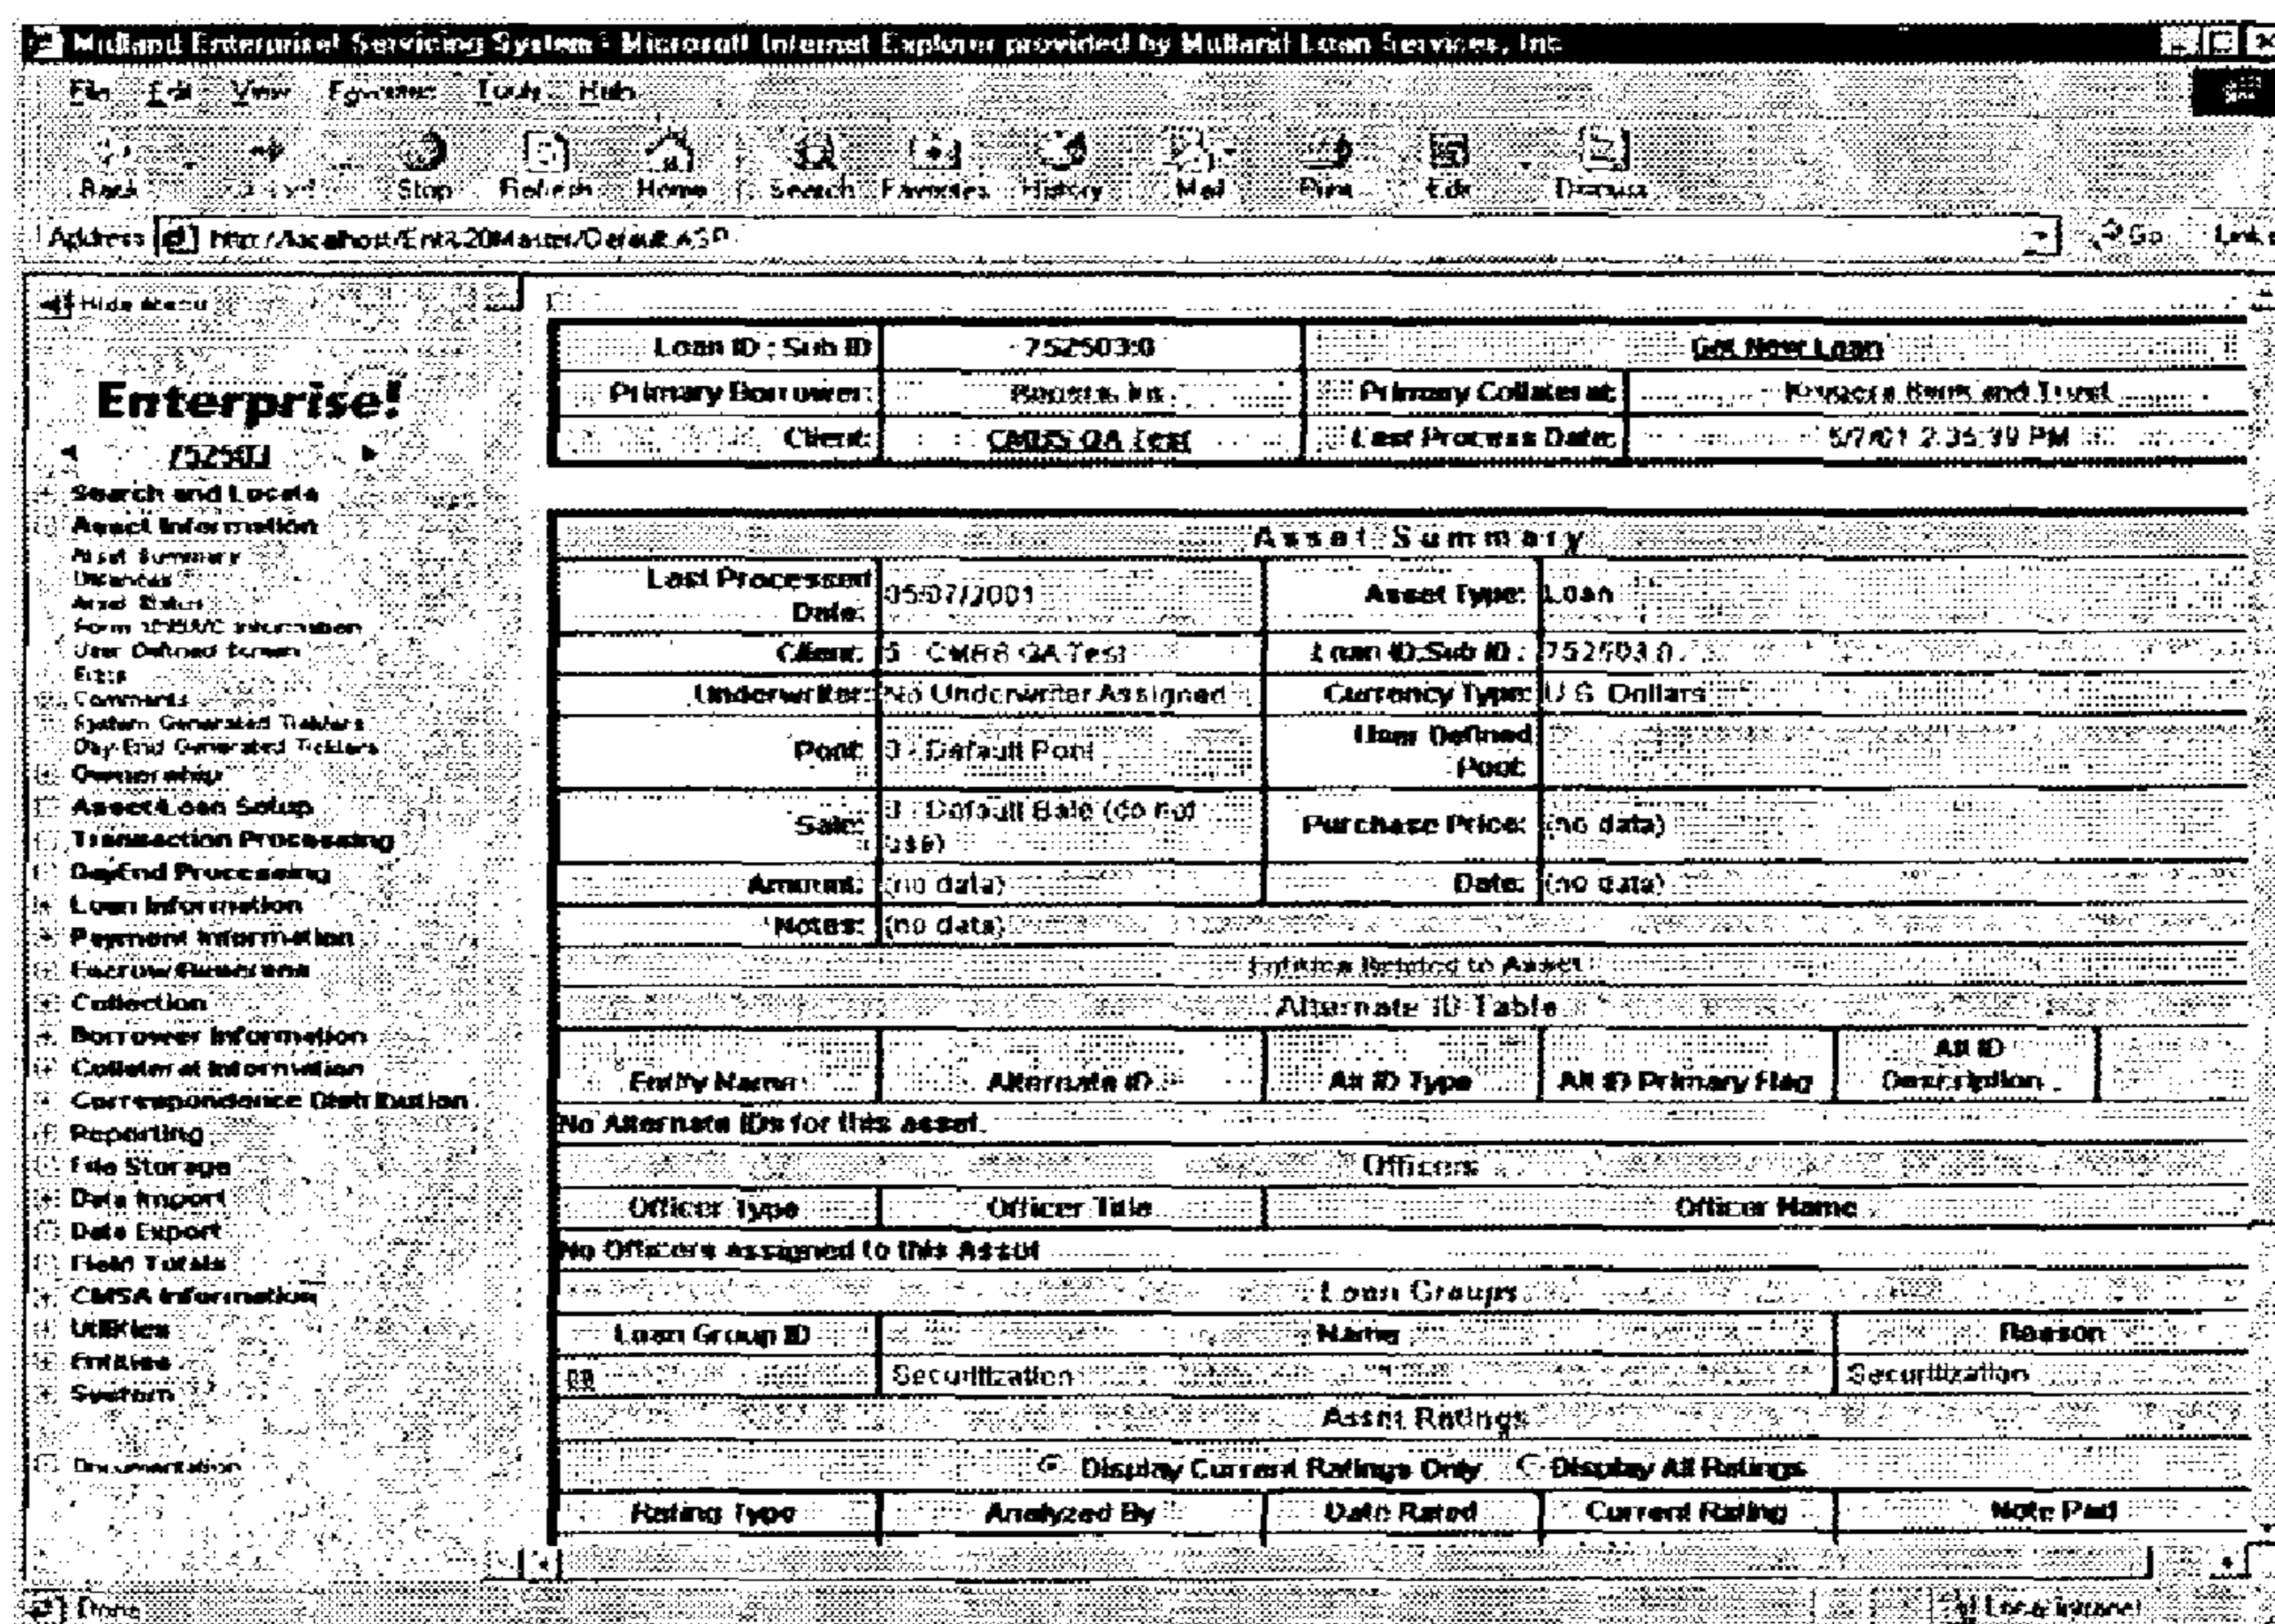 Midland Enterprise! Servicing System - Microsoft Internet Explorer provided by Midland Loan Services, Inc
File Edit View Favorites Tools Help
Back Stop Refresh Home Search Favorites History Mail Print Edit Discuss
Address http://localhost/Ent%20Master/Default.ASP Go Links
Hide Menu
Enterprise!
752503
Search and Locate
Asset Information
Asset Summary
Asset Status
User Defined Screen
Extra
Comments
System Generated Ticklers
Day-End Generated Ticklers
Ownership
Asset/Loan Setup
Transaction Processing
DayEnd Processing
Loan Information
Payment Information
Escrow/Reserves
Collection
Borrower Information
Collateral Information
Correspondence Distribution
Reporting
File Storage
Data Import
Data Export
Field Totals
CMSA Information
Utilities
Entities
System
Documentation
Loan ID : Sub ID 752503:0 Get New Loan
Primary Borrower: Primary Collateral: Bank and Trust
Client: CMBS QA Test Last Process Date: 5/7/01 2:35:39 PM
Asset Summary
Last Processed Date: 05/07/2001 Asset Type: Loan
Client: 5 - CMBS QA Test Loan ID:Sub ID : 752503:0
Underwriter: No Underwriter Assigned Currency Type: U.S. Dollars
Pool: 0 - Default Pool User Defined Pool:
Sale: 0 - Default Sale (do not use) Purchase Price: (no data)
Amount: (no data) Date: (no data)
Notes: (no data)
Entities Related to Asset
Alternate ID Table
Entity Name Alternate ID Alt ID Type Alt ID Primary Flag Alt ID Description
No Alternate IDs for this asset.
Officers
Officer Type Officer Title Officer Name
No Officers assigned to this Asset
Loan Groups
Loan Group ID Name Reason
Securitization Securitization
Asset Ratings
Display Current Ratings Only Display All Ratings
Rating Type Analyzed By Date Rated Current Rating Note Pad
Done Local intranet